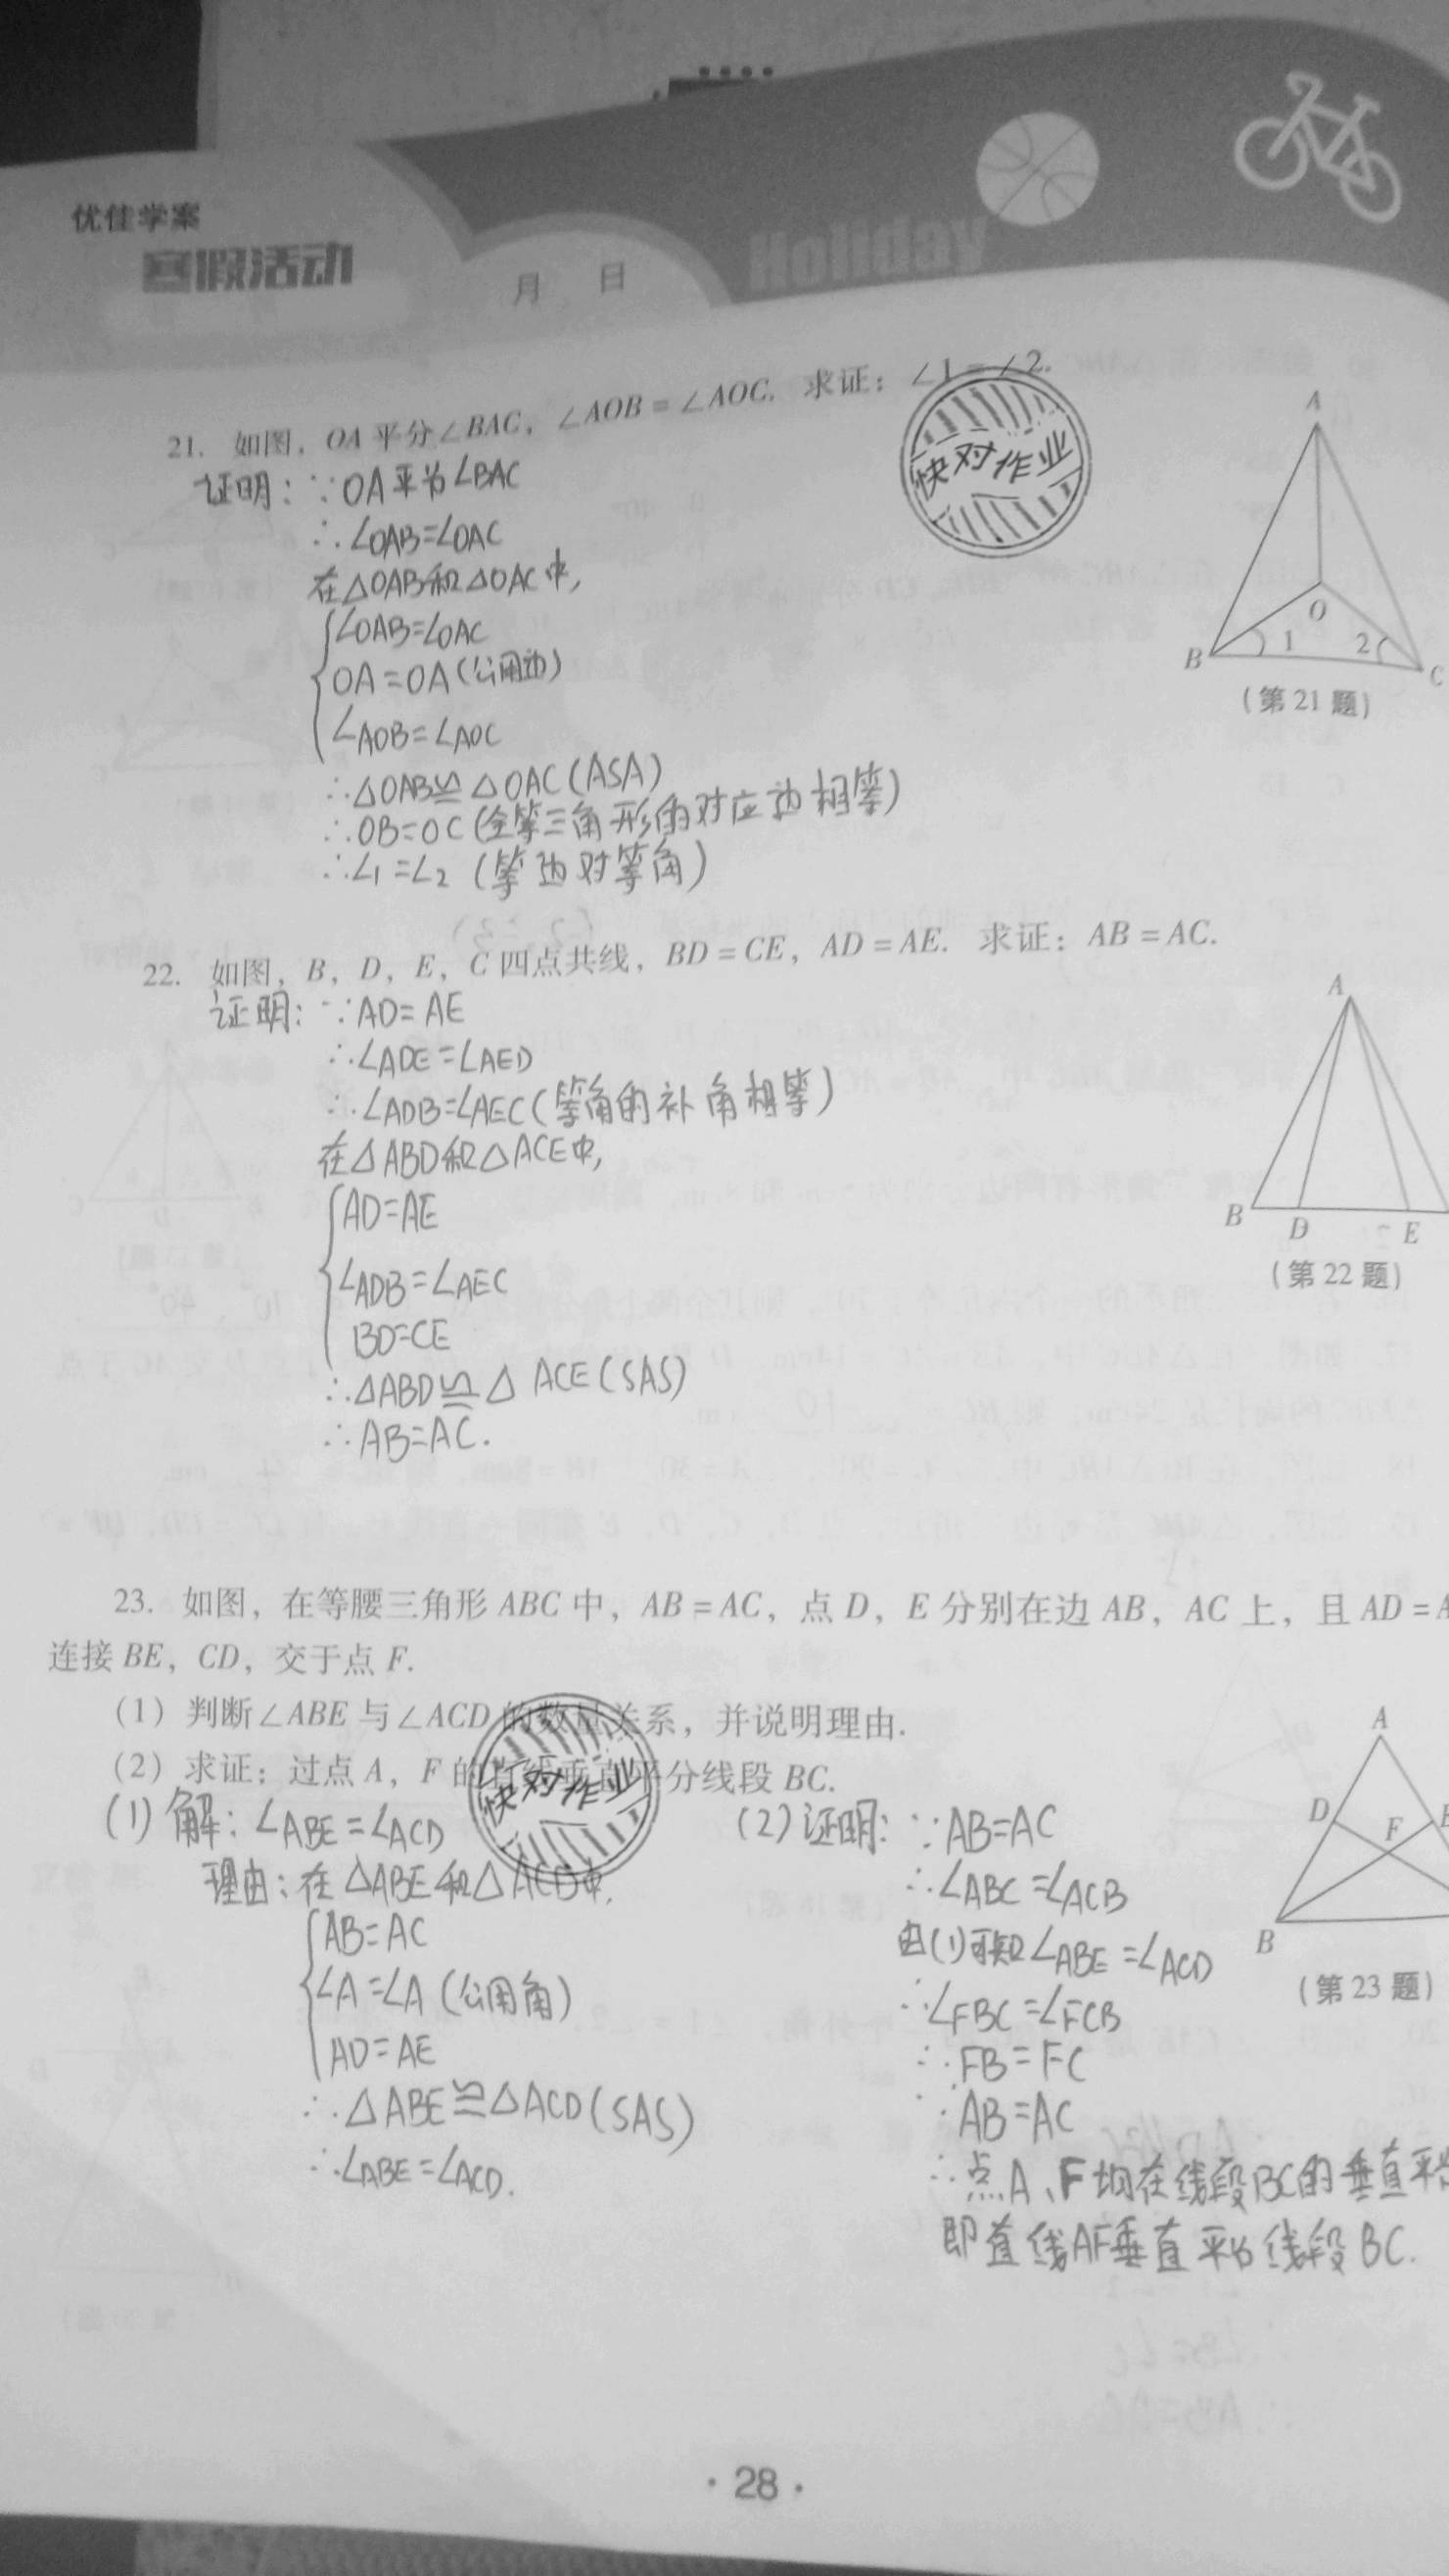 优佳学案
寒假活动
月 日
Holiday
21. 如图，OA平分∠BAC，∠AOB=∠AOC. 求证：∠1=∠2.
快对作业
证明：∵OA平分∠BAC
∴∠OAB=∠OAC
在△OAB和△OAC中,
∠OAB=∠OAC
OA=OA(公用边)
∠AOB=∠AOC
∴△OAB≌△OAC(ASA)
∴OB=OC(全等三角形的对应边相等)
∴∠1=∠2(等边对等角)
A
O
B 1 2 C
(第21题)
22. 如图，B，D，E，C四点共线，BD=CE，AD=AE. 求证：AB=AC.
证明：∵AD=AE
∴∠ADE=∠AED
∴∠ADB=∠AEC(等角的补角相等)
在△ABD和△ACE中,
AD=AE
∠ADB=∠AEC
BD=CE
∴△ABD≌△ACE(SAS)
∴AB=AC.
A
B D E
(第22题)
23. 如图，在等腰三角形ABC中，AB=AC，点D，E分别在边AB，AC上，且AD=
连接BE，CD，交于点F.
(1)判断∠ABE与∠ACD的数量关系，并说明理由.
(2)求证：过点A，F的直线垂直平分线段BC.
快对作业
(1)解：∠ABE=∠ACD
理由：在△ABE和△ACD中,
AB=AC
∠A=∠A(公用角)
AD=AE
∴△ABE≌△ACD(SAS)
∴∠ABE=∠ACD.
(2)证明：∵AB=AC
∴∠ABC=∠ACB
由(1)可知∠ABE=∠ACD
∴∠FBC=∠FCB
∴FB=FC
∵AB=AC
∴点A、F均在线段BC的垂直平
即直线AF垂直平分线段BC.
A
D F
B
(第23题)
·28·